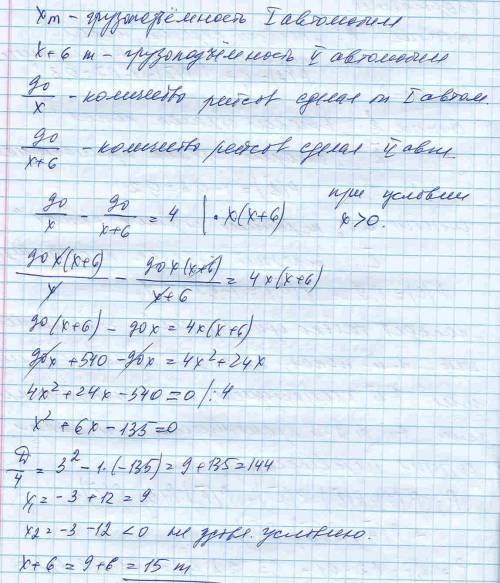 x т - грузоподъёмность I автомобиля
x+6 т - грузоподъёмность II автомобиля
90/x - количество рейсов сделал I автом
90/(x+6) - количество рейсов сделал II авт.
90/x - 90/(x+6) = 4 | · x(x+6) при условии
x>0.
90x(x+6)/x - 90x(x+6)/(x+6) = 4x(x+6)
90(x+6) - 90x = 4x(x+6)
90x + 540 - 90x = 4x² + 24x
4x² + 24x - 540 = 0 /:4
x² + 6x - 135 = 0
Д/4 = 3² - 1·(-135) = 9 + 135 = 144
x₁ = -3 + 12 = 9
x₂ = -3 - 12 < 0 не удовл. условию.
x+6 = 9+6 = 15 т